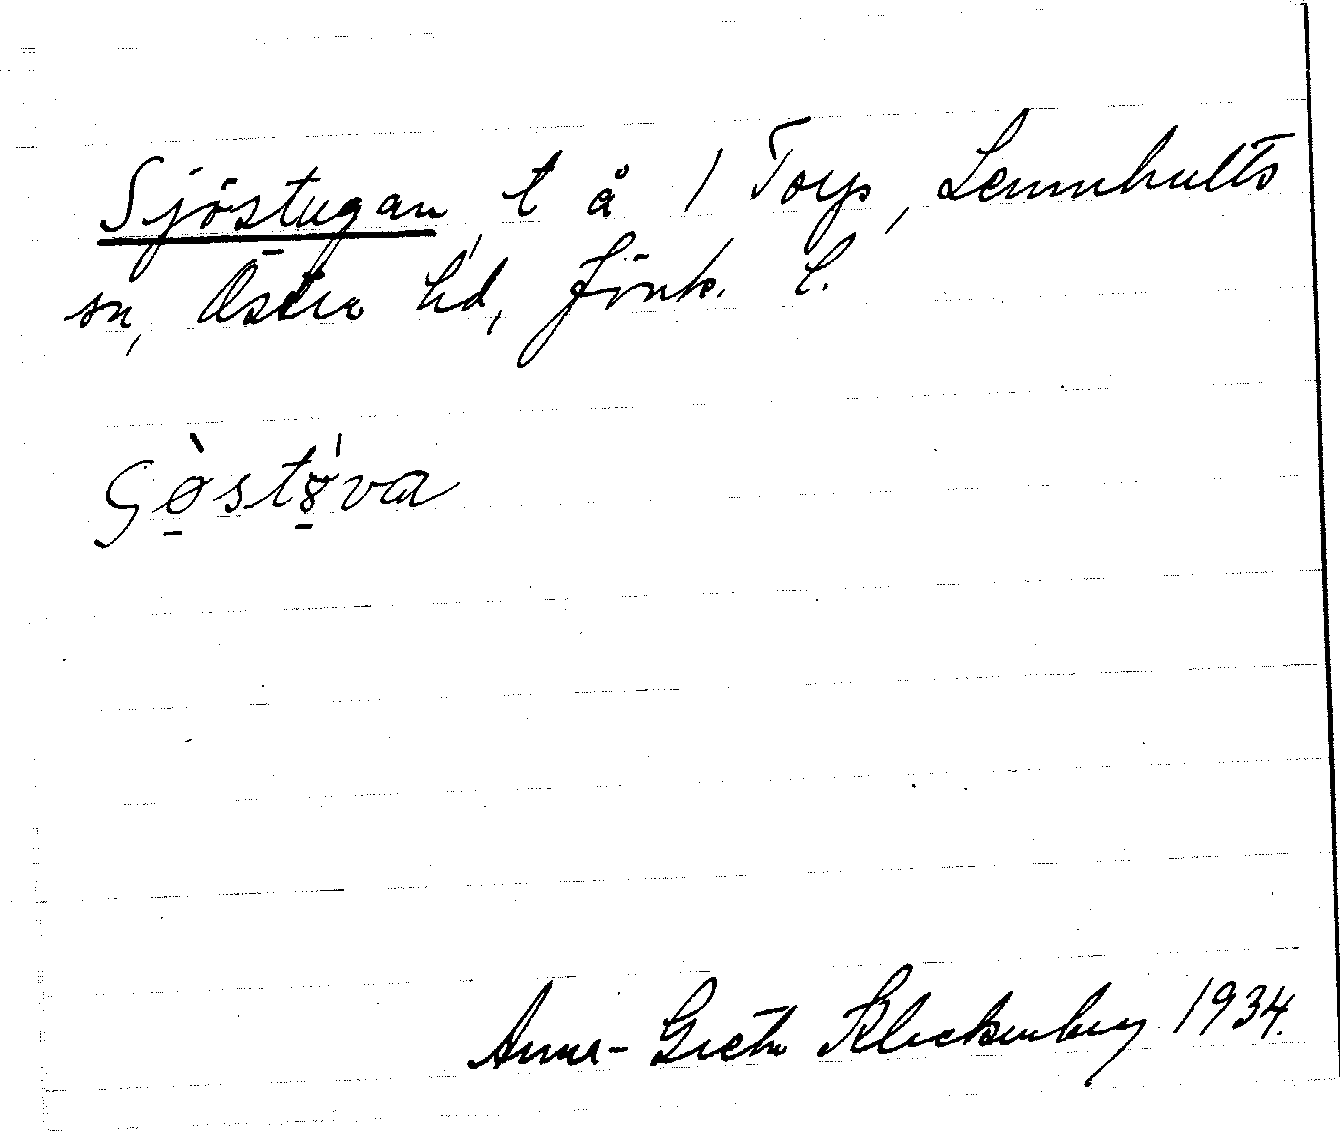 Sjöstugan, t å 1 Torp, Lemnhults
sn, Östra hd, Jönk. l.
Göstöva
Anna-Greta Kleckenberg 1934.